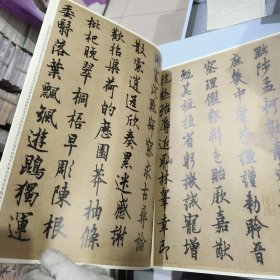 黜陟
庶幾中庸勞謙謹勅聆音
察理鑑貌辨色貽厥嘉猷
勉其祗植省躬譏誡寵增
抗極殆辱近恥林皋幸即
寂寥求古尋論
散慮逍遙欣奏累遣慼謝
歡招渠荷的歷園莽抽條
枇杷晚翠梧桐早彫陳根
委翳落葉飄颻遊鵾獨運